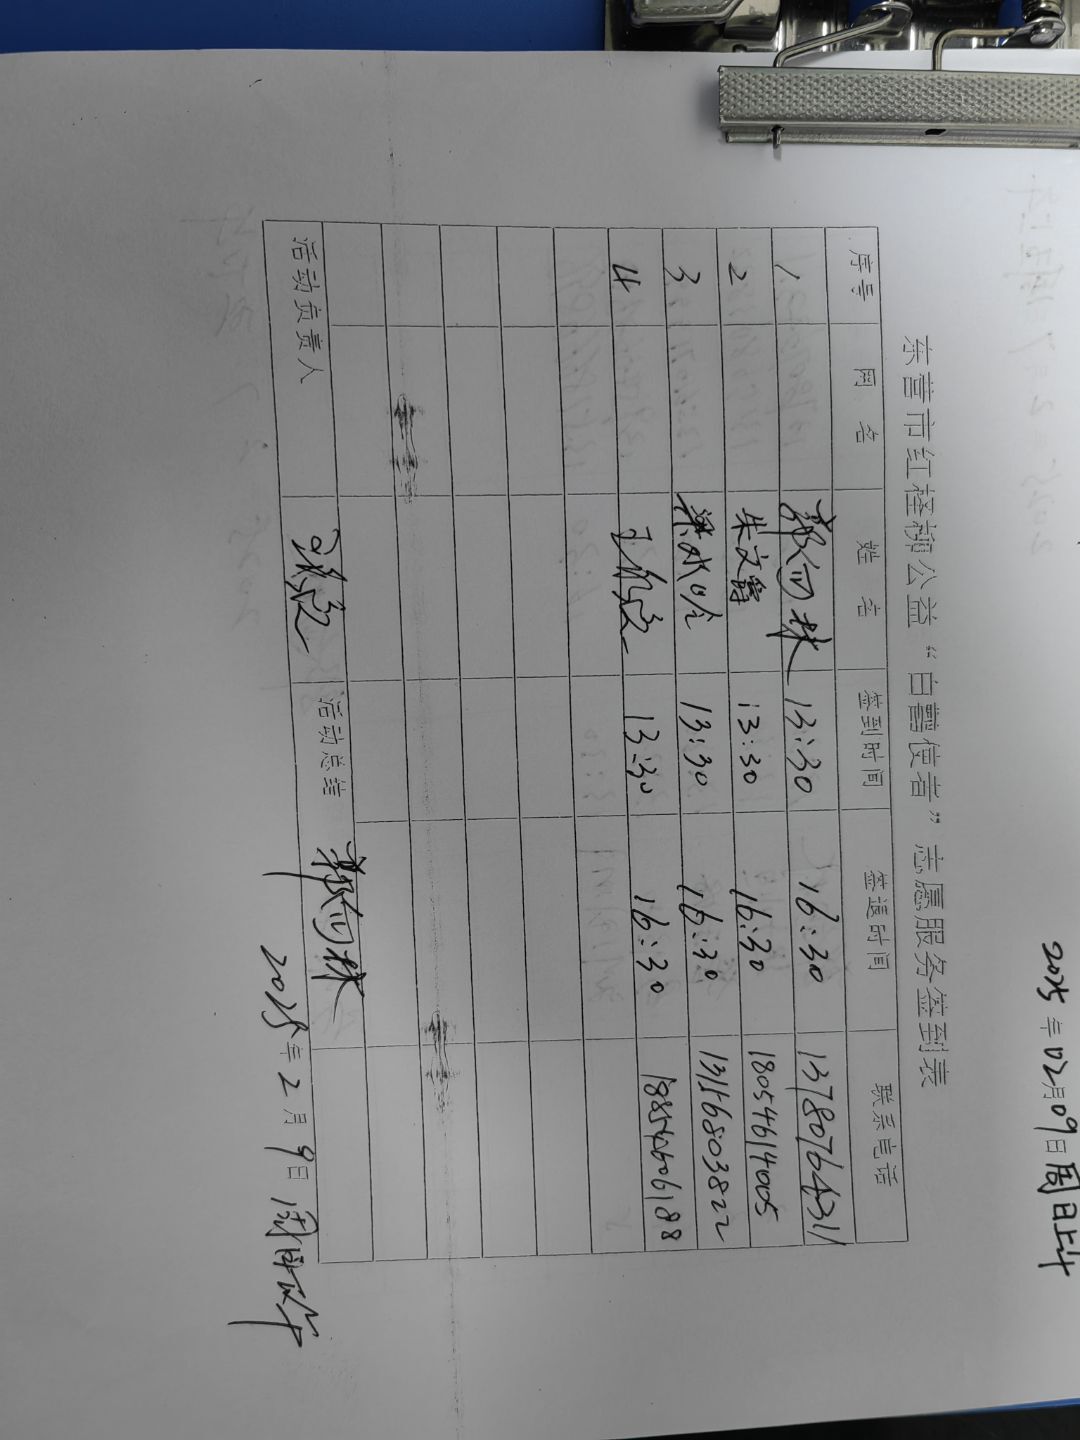 2025年02月09日周日上午
东营市红柽柳公益“白鹭使者”志愿服务签到表
序号 网名 姓名 签到时间 签退时间 联系电话
1. 郭向林 13:30 16:30 13780764311
2 朱文爵 13:30 16:30 18054614005
3 梁冰冰 13:30 16:30 13156803822
4 13:30 16:30 18854606188
活动负责人 活动总结 郭向林
2025年2月9日周日下午